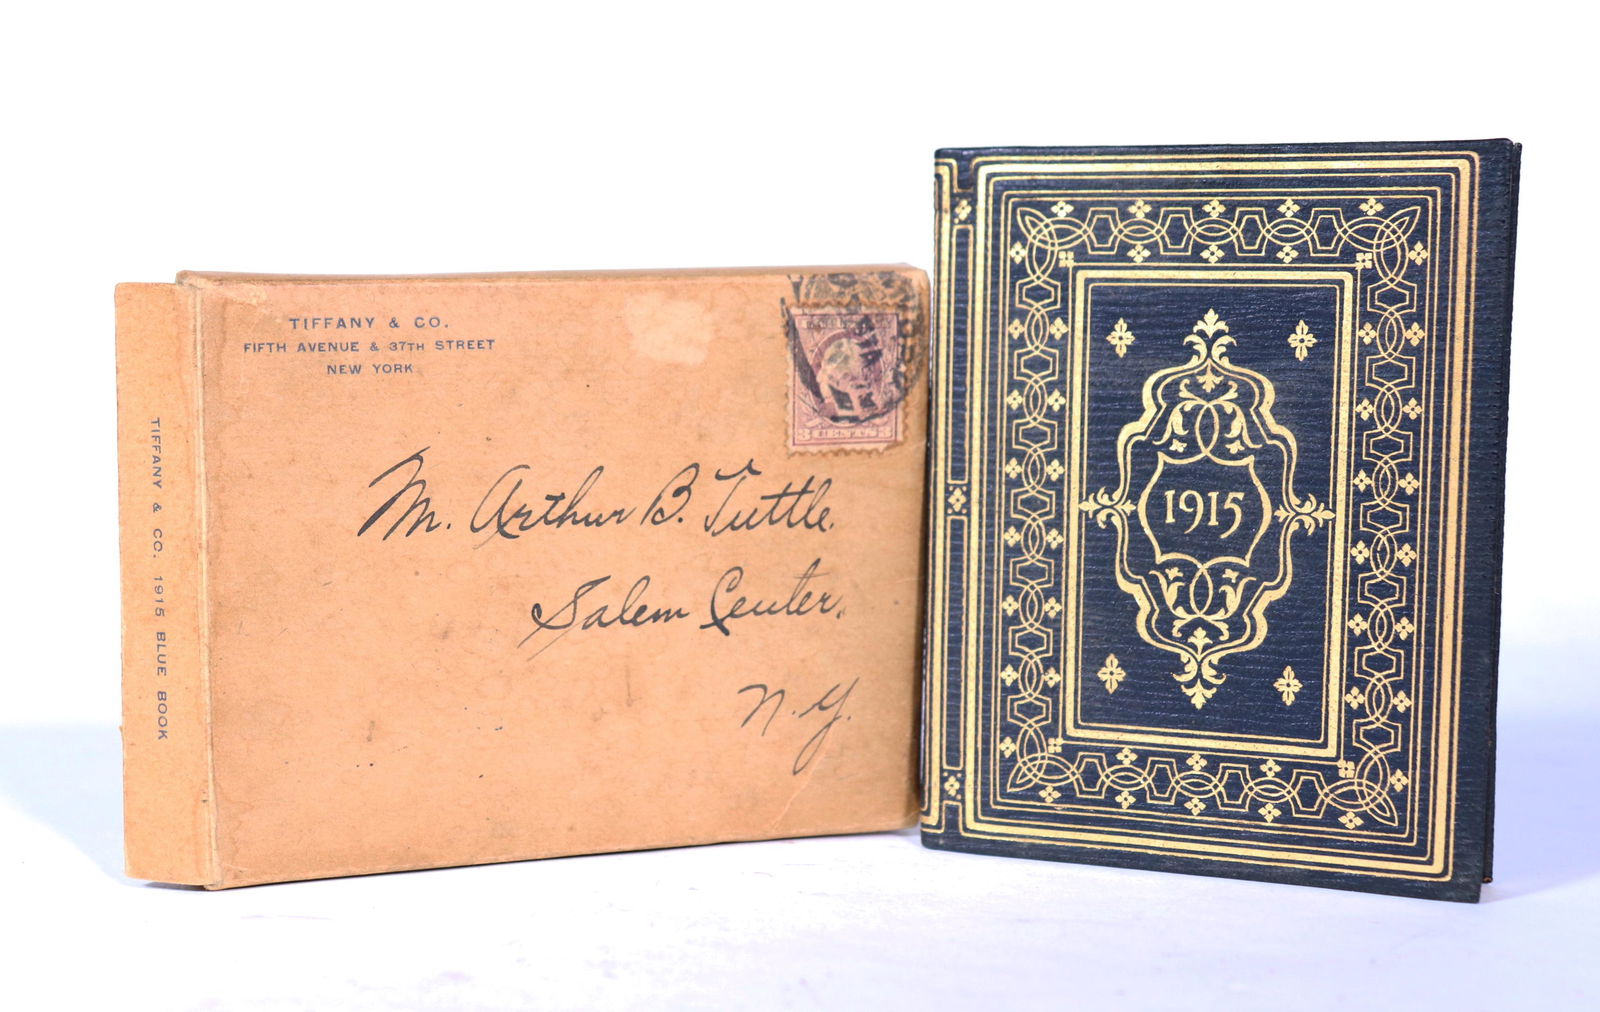 TIFFANY & CO. 1915 BLUE BOOK
TIFFANY & CO.
FIFTH AVENUE & 37TH STREET
NEW YORK
Mr. Arthur B. Tuttle.
Salem Center,
N.Y.
3 CENTS 3
1915